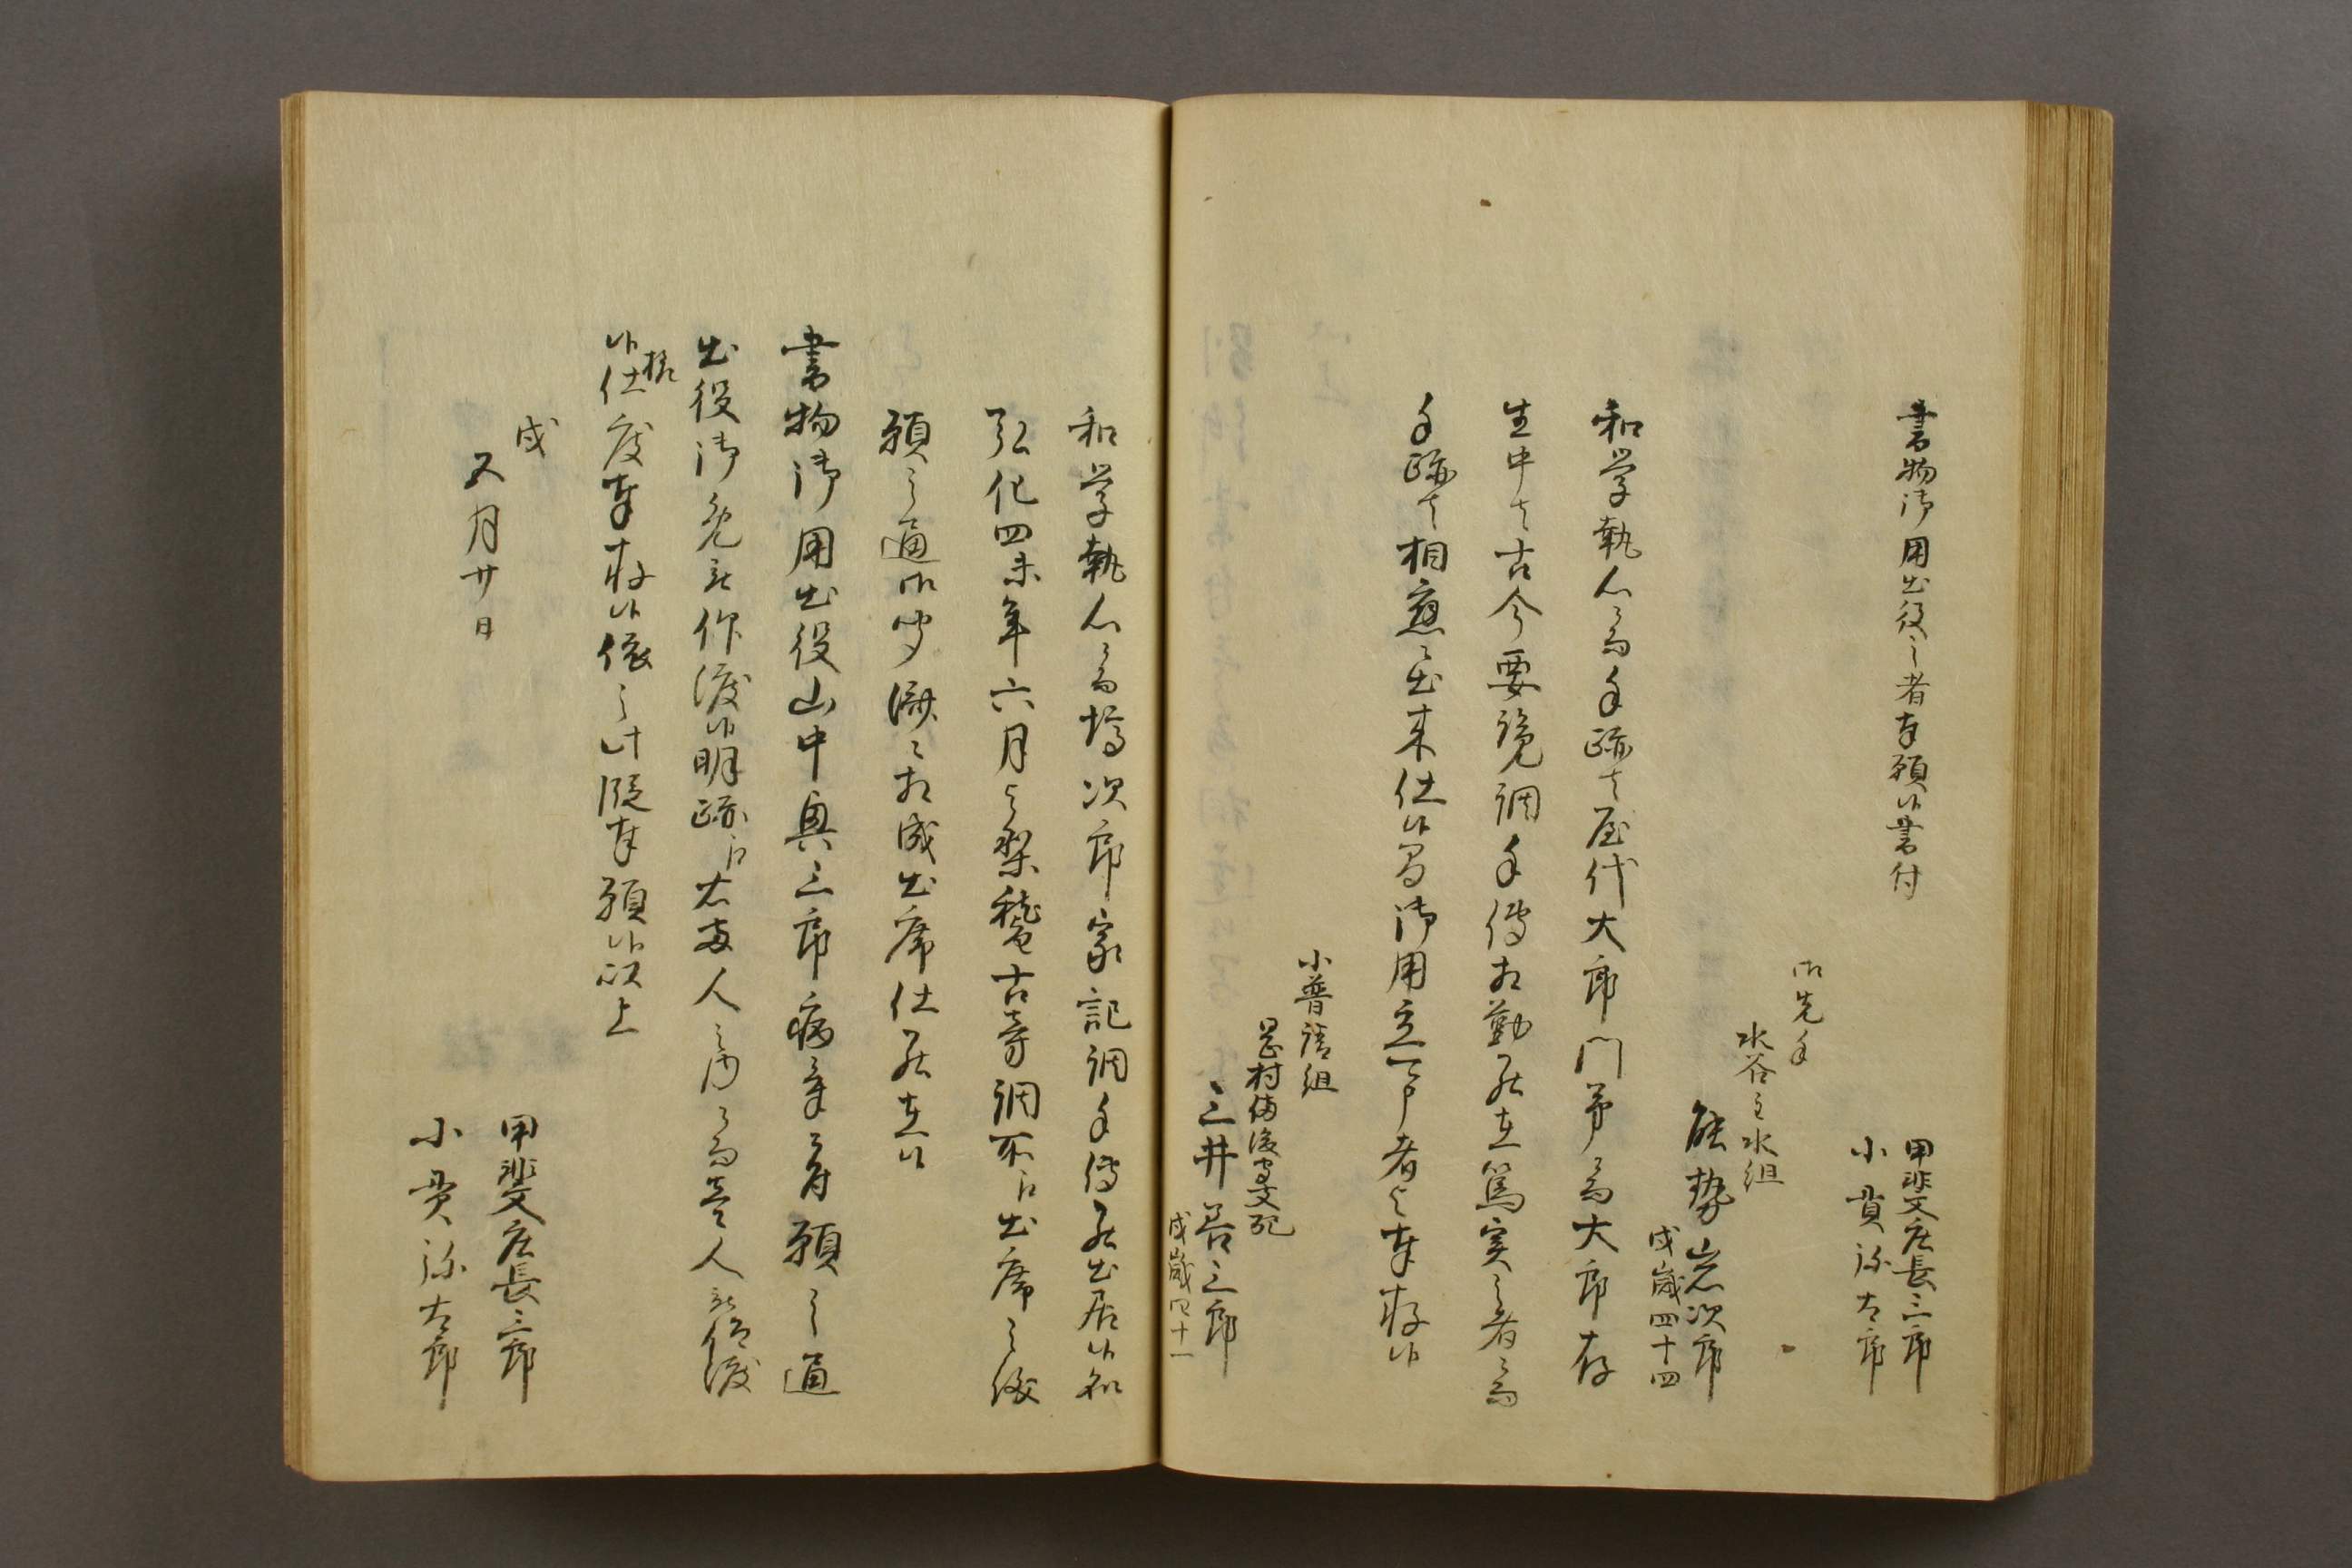 書物御用出役之者奉願候書付
甲斐庄長三郎
小貫弥太郎
御先手
水谷主水組
能勢岩次郎
戌歳四十四
和学執心ニ而手跡も屋代太郎門弟ニ而太郎存
生中も古今要覧調手伝相勤罷在篤実之者ニ而
手跡も相應ニ出来仕候間御用立可申者与奉存候
小普請組
岡村備後守支配
三井善三郎
戌歳四十一
和学執心ニ而塙次郎家記調手伝罷出居候処
弘化四未年六月与梨稽古寄調所江出席之儀
願之通御聞済ニ相成出席仕罷在候
書物御用出役山中奥三郎病気ニ付願之通
出役御免被仰渡候明跡江右両人之内ニ而壱人被仰渡
候様仕度奉存候依之此段奉願候以上
戌
五月廿日
甲斐庄長三郎
小貫弥太郎